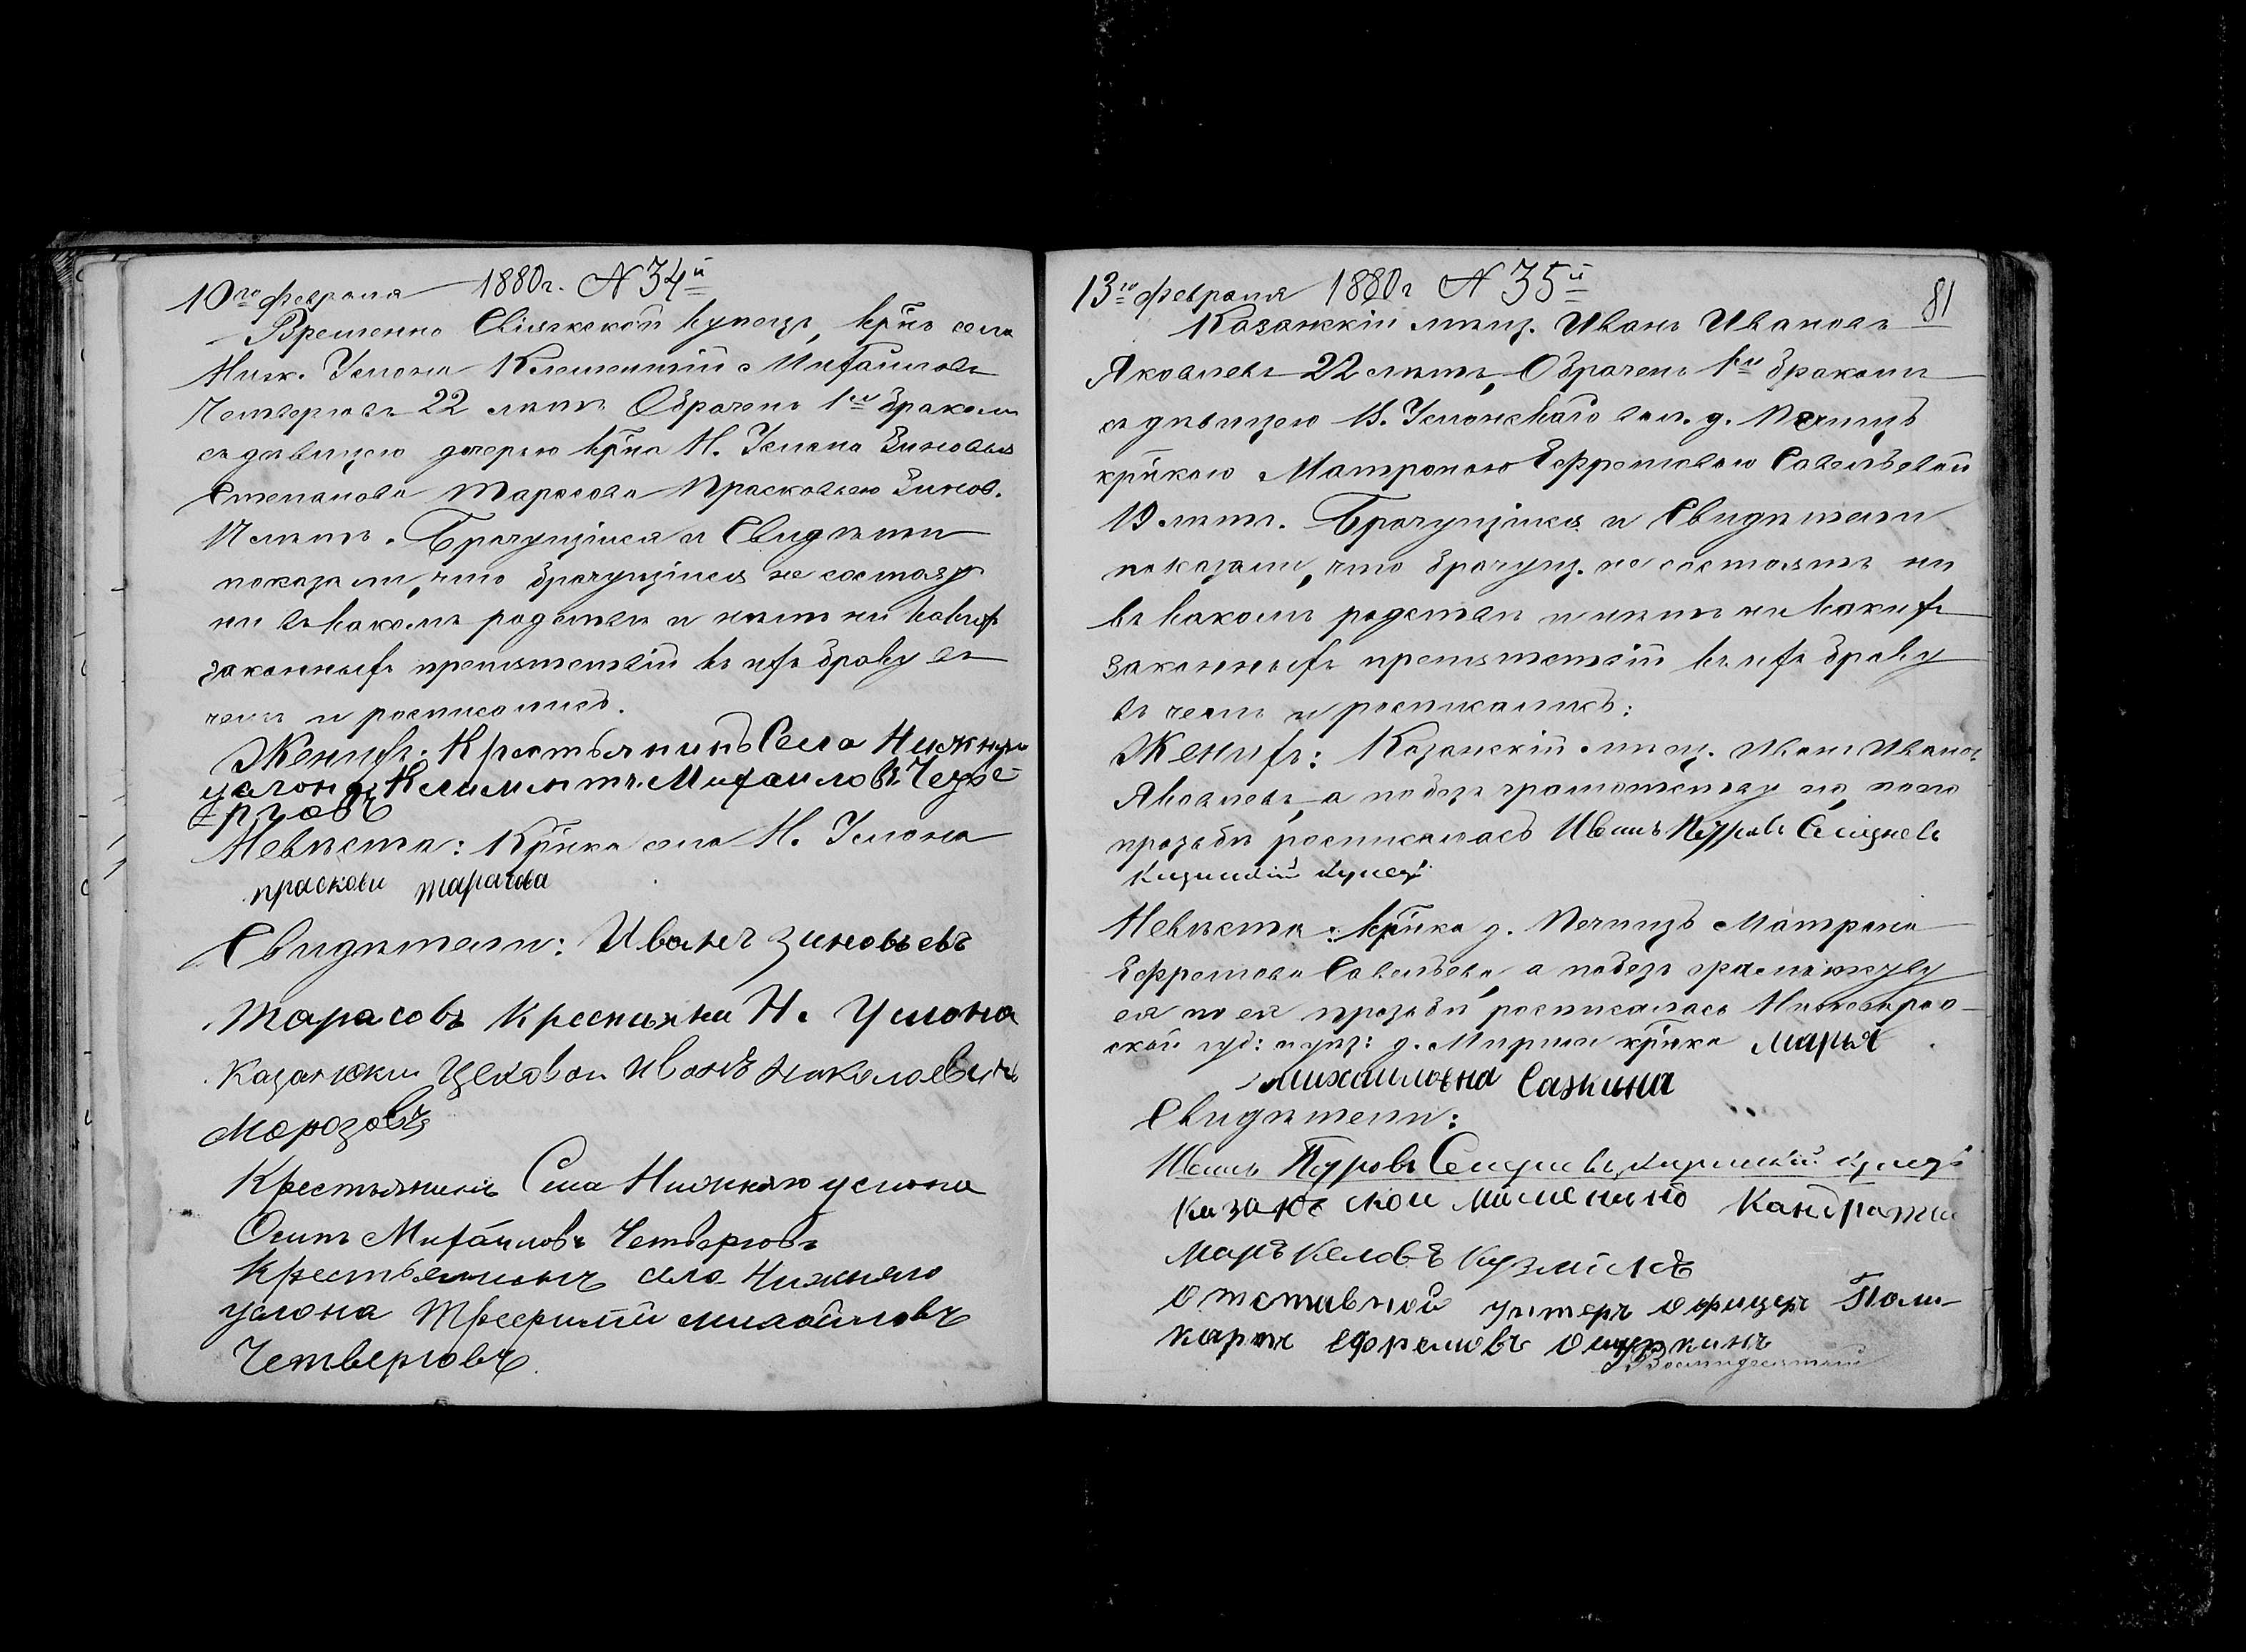 10го февраля 1880г. N 34й
Временно Свіяжской купецъ, крнъ села
Ниж. Услона Климентій Михайловъ
Четверговъ 22 лѣтъ Обрачен 1мъ бракомъ
съ дѣвицею дочерью крна Н. Услона Зиновья
Степанова Тарасова Прасковьею Зинов.
лѣтъ. Брачущіися и Свидѣтели
показали, что брачущіися не состоятъ
ни въ какомъ родствѣ и нѣтъ ни какихъ
законныхъ препятствій къ ихъ браку въ
чемъ и росписались.
Женихъ: Крестьянинъ Села Нижняго
услона Климентъ Михаиловъ Четве-
рговъ
Невѣста: Крнка села Н. Услона
прасковя тарасова
Свидѣтели: Иванъ Зиновьевъ
Тарасовъ Крестьянин Н. Услона
Казанскии Цеховои Иванъ Николаевичь
Морозовъ
Крестьянинъ Села Нижняго услона
Осипъ Михайловъ Четверговъ
Крестьянинъ села Нижняго
услона михайловъ
Четверговъ
13го февраля 1880г N 35й
81
Казанскій мѣщ. Иванъ Ивановъ
Яковлевъ 22 лѣтъ, Обрачен 1мъ бракомъ
съ дѣвицею В. Услонскаго вол. д. Печищъ
крнкою Матроною Ефремовою Савельевой
19 лѣтъ. Брачущіися и Свидѣтели
показали, что брачущ. не состоятъ ни
въ какомъ родствѣ и нѣтъ ни какихъ
законныхъ препятствій къ ихъ браку
въ чемъ и росписались:
Женихъ: Казанскій мѣщ. Иванъ Ивановъ
Яковлевъ, а по безграмотству его, по его
прозьбѣ росписалась Иванъ Петровъ Селезневъ
Казанскій Купецъ
Невѣста: крнка д. Печищъ Матрона
Ефремова Савельева, а по безграмотству
ея по ея прозьбѣ росписалась Нижегород-
ской губ: уѣз: д. крнка Марья
Михаиловна Сазкина
Свидѣтели:
Иванъ Петровъ Селезневъ, Казанскій Купецъ
Казанской Мещенино Кандратии
Маръкеловъ
Отставной унтеръ Офицеръ Поли-
карпъ Ефремовъ
Восьмидесятый